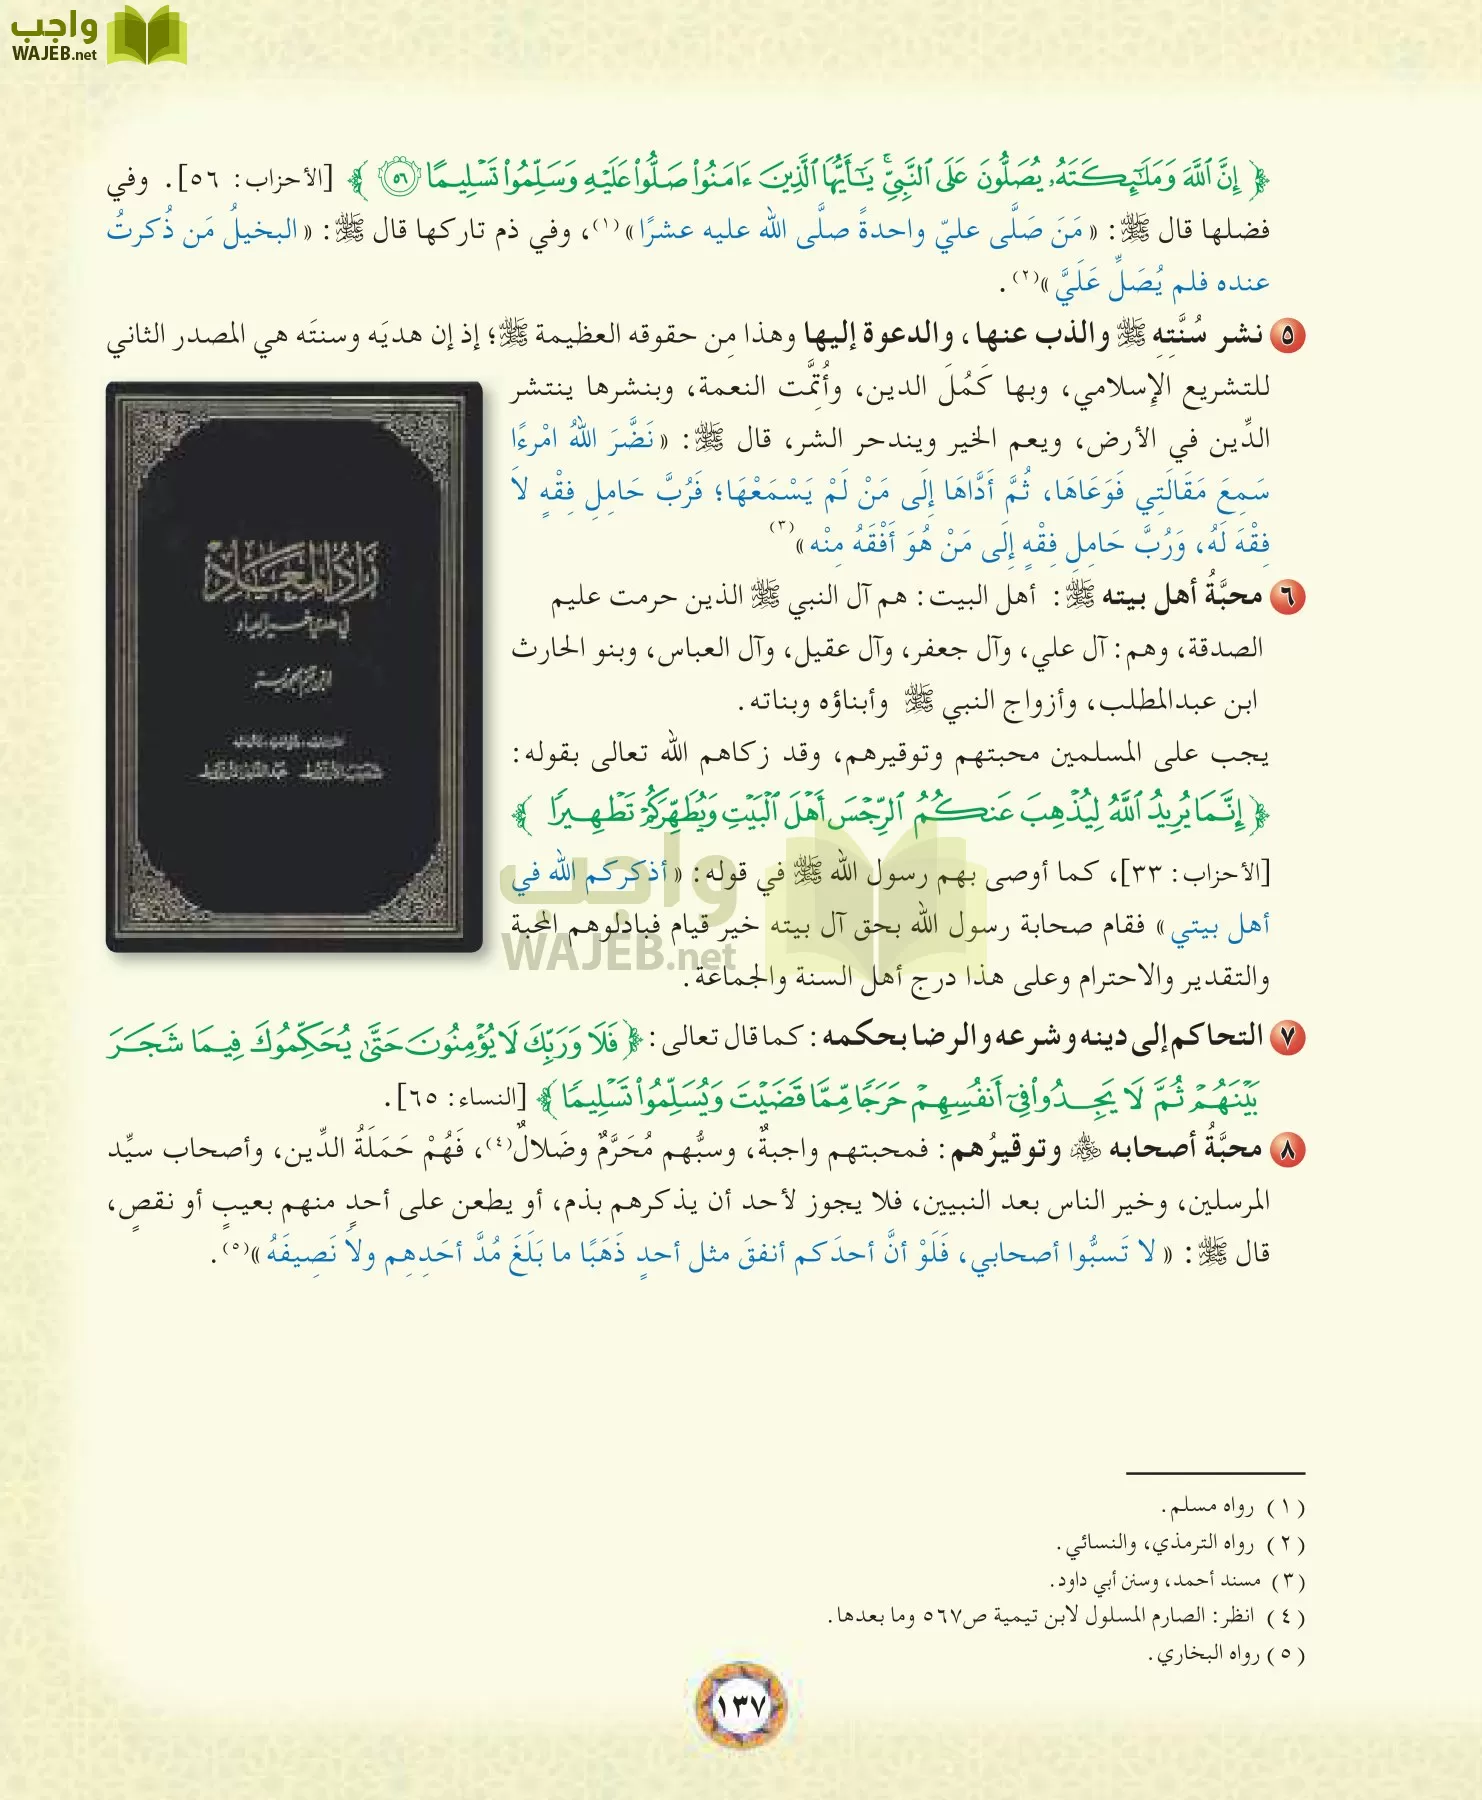 واجب
WAJEB.net
﴿ إِنَّ ٱللَّهَ وَمَلَٰٓئِكَتَهُۥ يُصَلُّونَ عَلَى ٱلنَّبِيِّۚ يَٰٓأَيُّهَا ٱلَّذِينَ ءَامَنُوا۟ صَلُّوا۟ عَلَيْهِ وَسَلِّمُوا۟ تَسْلِيمًا ٥٦ ﴾ [الأحزاب: ٥٦]. وفي
فضلها قال ﷺ: «مَنَ صَلَّى عليّ واحدةً صلَّى الله عليه عشرًا»(١)، وفي ذم تاركها قال ﷺ: «البخيلُ مَن ذُكرتُ
عنده فلم يُصَلِّ عَلَيَّ»(٢).
٥ نشر سُنَّتِهِ ﷺ والذب عنها، والدعوة إليها وهذا مِن حقوقه العظيمة ﷺ؛ إذ إن هديَه وسنتَه هي المصدر الثاني
للتشريع الإسلامي، وبها كَمُلَ الدين، وأُتِمَّت النعمة، وبنشرها ينتشر
الدِّين في الأرض، ويعم الخير ويندحر الشر، قال ﷺ: «نَضَّرَ اللهُ امْرءًا
سَمِعَ مَقَالَتِي فَوَعَاهَا، ثُمَّ أَدَّاهَا إِلَى مَنْ لَمْ يَسْمَعْهَا؛ فَرُبَّ حَامِلِ فِقْهٍ لاَ
فِقْهَ لَهُ، وَرُبَّ حَامِلِ فِقْهٍ إِلَى مَنْ هُوَ أَفْقَهُ مِنْه»(٣)
زاد المعاد
في هدي خير العباد
٦ محبَّةُ أهل بيته ﷺ: أهل البيت: هم آل النبي ﷺ الذين حرمت عليم
الصدقة، وهم: آل علي، وآل جعفر، وآل عقيل، وآل العباس، وبنو الحارث
ابن عبدالمطلب، وأزواج النبي ﷺ وأبناؤه وبناته.
يجب على المسلمين محبتهم وتوقيرهم، وقد زكاهم الله تعالى بقوله:
﴿ إِنَّمَا يُرِيدُ ٱللَّهُ لِيُذْهِبَ عَنكُمُ ٱلرِّجْسَ أَهْلَ ٱلْبَيْتِ وَيُطَهِّرَكُمْ تَطْهِيرًا ﴾
[الأحزاب: ٣٣]، كما أوصى بهم رسول الله ﷺ في قوله: «أذكركم الله في
أهل بيتي» فقام صحابة رسول الله بحق آل بيته خير قيام فبادلوهم المحبة
والتقدير والاحترام وعلى هذا درج أهل السنة والجماعة.
واجب
WAJEB.net
٧ التحاكم إلى دينه وشرعه والرضا بحكمه: كما قال تعالى: ﴿ فَلَا وَرَبِّكَ لَا يُؤْمِنُونَ حَتَّىٰ يُحَكِّمُوكَ فِيمَا شَجَرَ
بَيْنَهُمْ ثُمَّ لَا يَجِدُوا۟ فِىٓ أَنفُسِهِمْ حَرَجًا مِّمَّا قَضَيْتَ وَيُسَلِّمُوا۟ تَسْلِيمًا ﴾ [النساء: ٦٥].
٨ محبَّةُ أصحابه ﷺ وتوقيرُهم: فمحبتهم واجبةٌ، وسبُّهم مُحَرَّمٌ وضَلالٌ(٤)، فَهُمْ حَمَلَةُ الدِّين، وأصحاب سيِّد
المرسلين، وخير الناس بعد النبيين، فلا يجوز لأحد أن يذكرهم بذم، أو يطعن على أحدٍ منهم بعيبٍ أو نقصٍ،
قال ﷺ: «لا تَسبُّوا أصحابي، فَلَوْ أنَّ أحدَكم أنفقَ مثل أحدٍ ذَهَبًا ما بَلَغَ مُدَّ أحَدِهِم ولاَ نَصِيفَهُ»(٥).
(١) رواه مسلم.
(٢) رواه الترمذي، والنسائي.
(٣) مسند أحمد، وسنن أبي داود.
(٤) انظر: الصارم المسلول لابن تيمية ص٥٦٧ وما بعدها.
(٥) رواه البخاري.
١٣٧